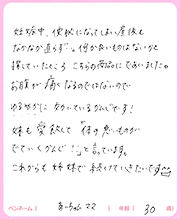 妊娠中、便秘になってしまい産後も
なかなか直らず、何か良いものはないかと
探していたところ こちらの商品にであいました。
お腹が痛くなるのではないので
ゆるやかに効いているかんじです!
妹も愛飲して「体の悪いものが
でていくかんじ!」と言っています。
これからも姉妹で続けていきたいです
ペンネーム( あーちゃんママ ) 年齢( 30 歳)